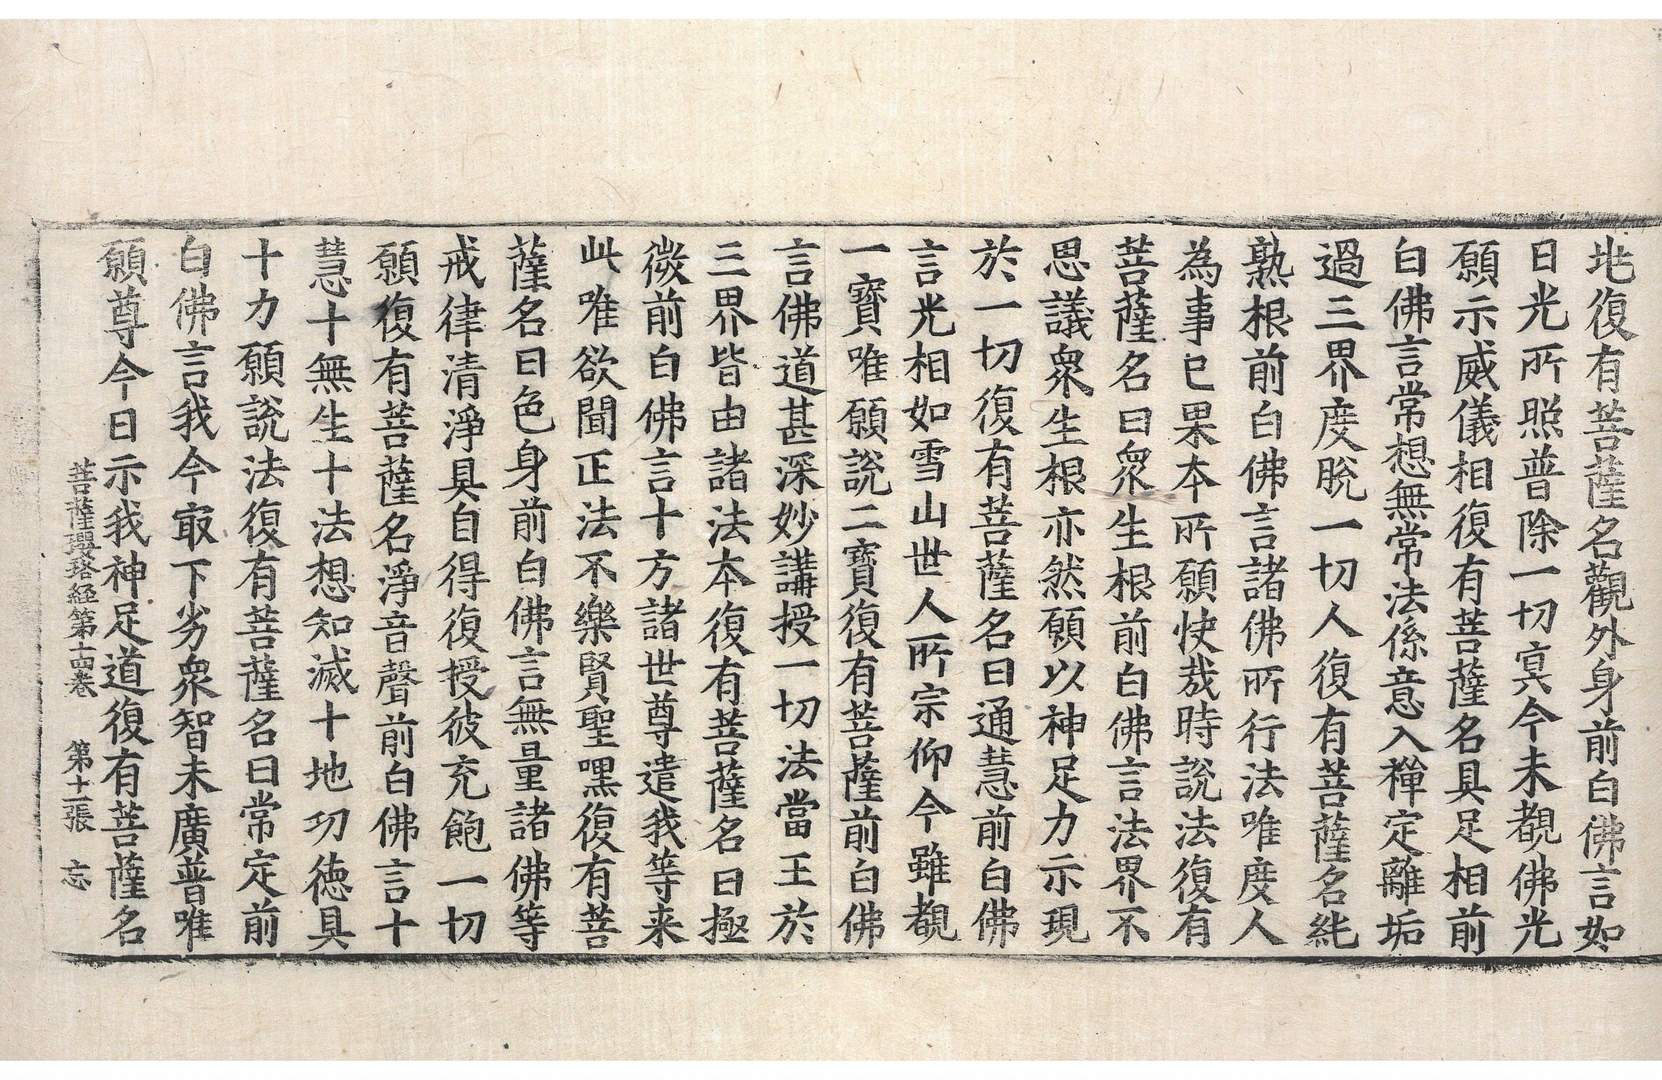 地復有菩薩名觀外身前白佛言如
日光所照普除一切冥今未覩佛光
願示威儀相復有菩薩名具足相前
白佛言常想無常法係意入禪定離垢
過三界度脫一切人復有菩薩名純
熟根前白佛言諸佛所行法唯度人
為事已果本所願快哉時說法復有
菩薩名曰眾生根前白佛言法界不
思議眾生根亦然願以神足力示現
於一切復有菩薩名曰通慧前白佛
言光相如雪山世人所宗仰今雖覩
一寶唯願說二寶復有菩薩前白佛
言佛道甚深妙講授一切法當王於
三界皆由諸法本復有菩薩名曰極
微前白佛言十方諸世尊遣我等来
此唯欲聞正法不樂賢聖嘿復有菩
薩名曰色身前白佛言無量諸佛等
戒律清淨具自得復授彼充飽一切
願復有菩薩名淨音聲前白佛言十
慧十無生十法想知滅十地功德具
十力願說法復有菩薩名曰常定前
白佛言我今㝡下劣眾智未廣普唯
願尊今日示我神足道復有菩薩名
菩薩瓔珞經第十四卷 第十一張 忘